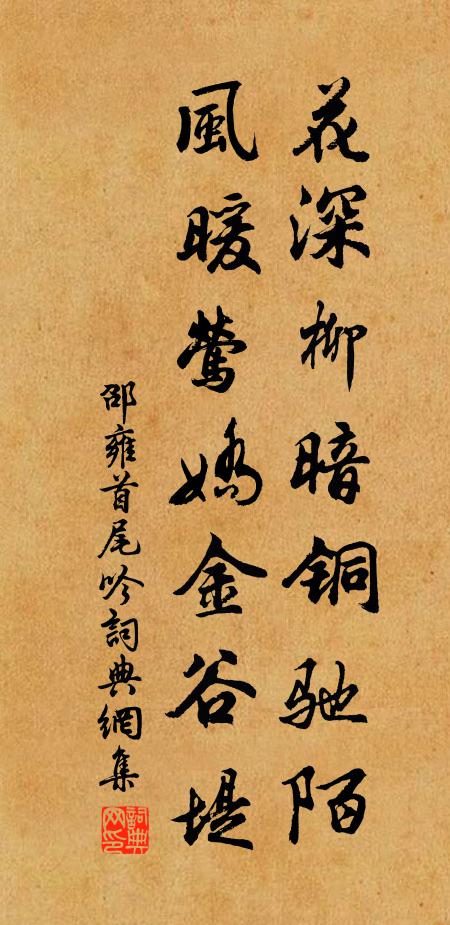 花深柳暗铜驰陌
風暖鶯嬌金谷堤
邵雍首尾吟詞典網集
詞典网印